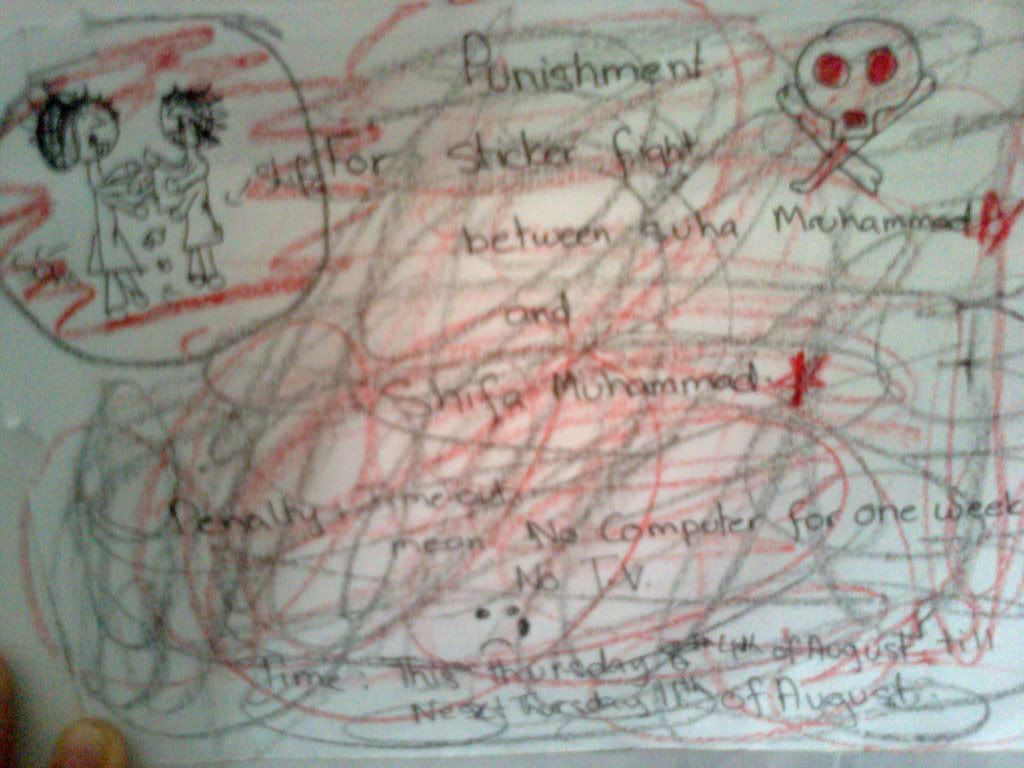 Punishment
For sticker fight
between Muhammad
and
Shifa Muhammad
Penalty: Time out
mean No Computer for one week
No T.V.
Time: This thursday 4th of August till
Next Thursday 11th of August.